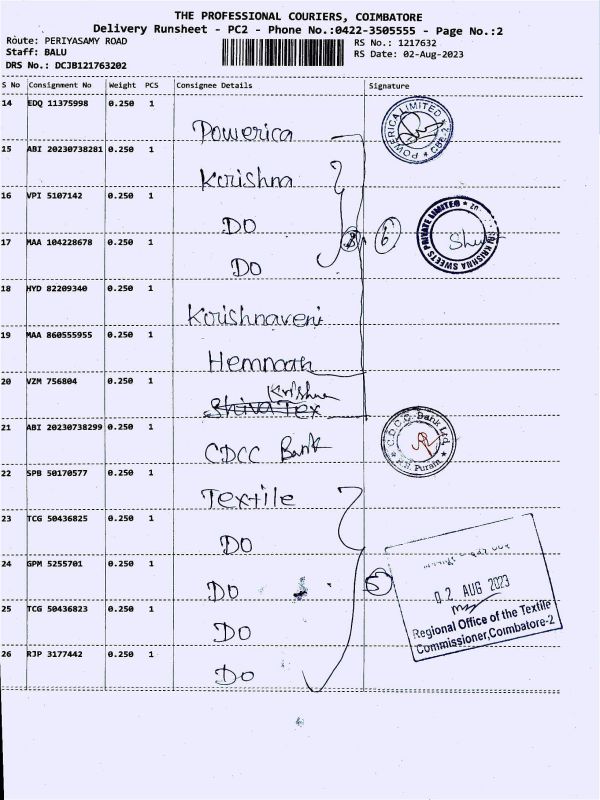 THE PROFESSIONAL COURIERS, COIMBATORE
Delivery Runsheet - PC2 - Phone No.:0422-3505555 - Page No.:2
Route: PERIYASAMY ROAD
RS No.: 1217632
Staff: BALU
RS Date: 02-Aug-2023
DRS No.: DCJB121763202
S No Consignment No Weight PCS Consignee Details Signature
14 EDQ 11375998 0.250 1
Powerica
POWERICA LIMITED
15 ABI 20230738281 0.250 1
Krishna
16 VPI 5107142 0.250 1
DO
6
SRI KRISHNA SWEETS PRIVATE LIMITED
17 MAA 104228678 0.250 1
DO
18 HYD 82209340 0.250 1
Krishnaveni
19 MAA 860555955 0.250 1
Hemnath
20 VZM 756804 0.250 1
Krishna
Shiva Tex
21 ABI 20230738299 0.250 1
CDCC Bank
C.D.C.C. Bank Ltd.
R.S. Puram
22 SPB 50170577 0.250 1
Textile
23 TCG 50436825 0.250 1
DO
24 GPM 5255701 0.250 1
DO
5
02 AUG 2023
25 TCG 50436823 0.250 1
DO
Regional Office of the Textile
Commissioner, Coimbatore-2
26 RJP 3177442 0.250 1
DO